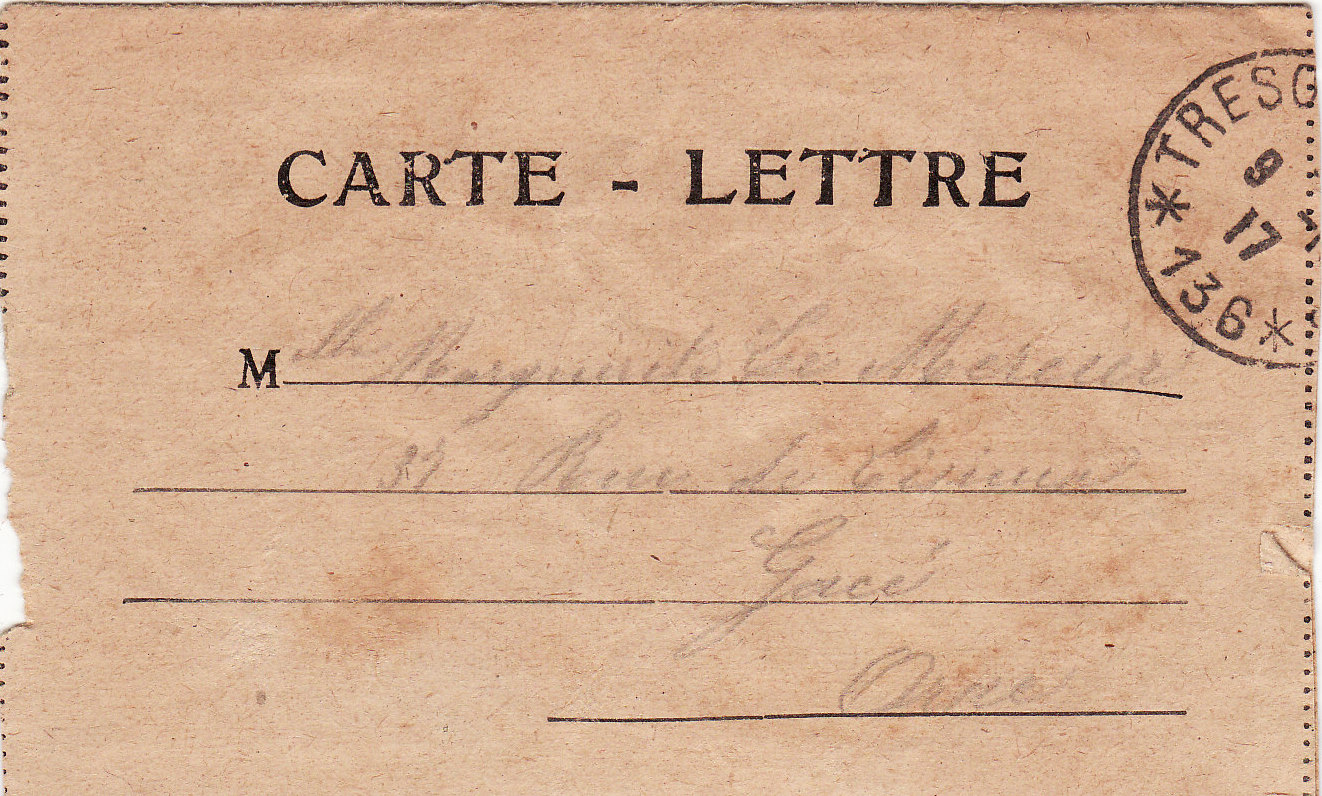 CARTE - LETTRE
*TRESG
9
17
136*
Mlle Marguerite Le Mercier
37 Rue de
Gacé
Orne